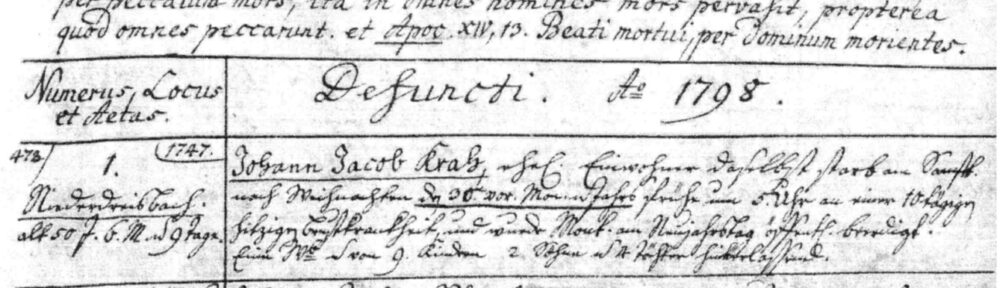 per peccatum mors, ita in omnes homines mors pervasit, propterea
quod omnes peccarunt. et Apoc. XIV, 13. Beati mortui, per Dominum morientes.
Numerus, Locus
et Aetas.
Defuncti. Ao 1798.
473/ 1. 1747.
Niederdreisbach.
alt 50 J. 6. M. u 9 Tage.
Johann Jacob Kratz, ehel. Einwohner daselbst starb am
nach Weihnachten frühe um 5 Uhr an einer 10 tägigen
hitzigen Brustkrankheit, und wurde Mont. am Neujahrstag öffentl. beerdigt.
Eine von 9. Kindern 2. Söhne u 4 Töchter hinterlassend.